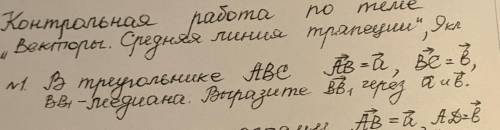 Контрольная работа по теме
„Векторы. Средняя линия трапеции", 9кл
№1. В треугольнике ABC AB⃗ = a⃗, BC⃗ = b⃗,
BB₁ - медиана. Выразите BB₁⃗ через a⃗ и b⃗.
AB⃗ = a⃗, AD⃗ = b⃗